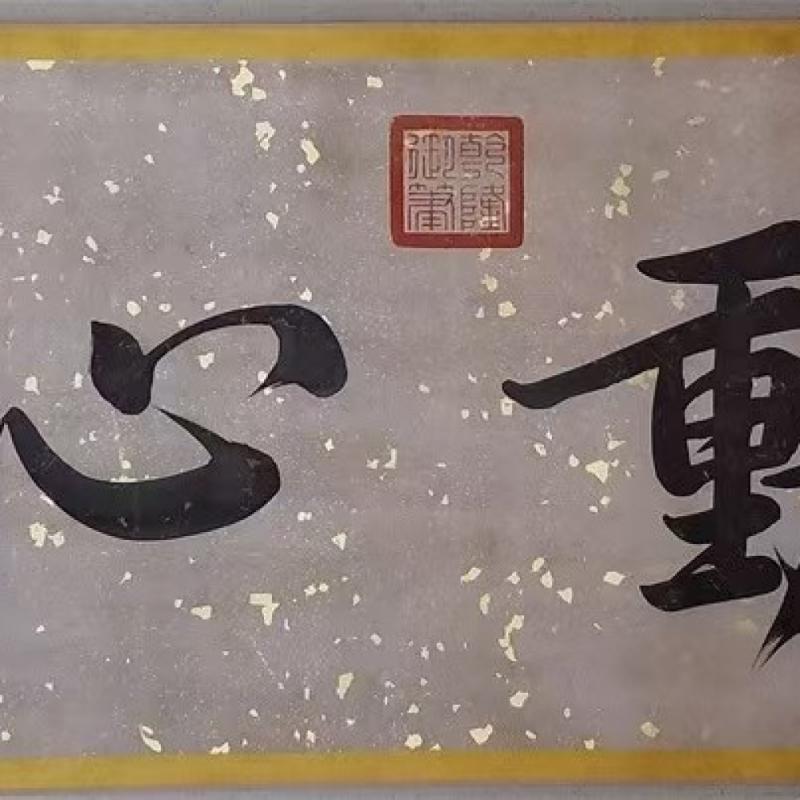 動心
乾隆御筆